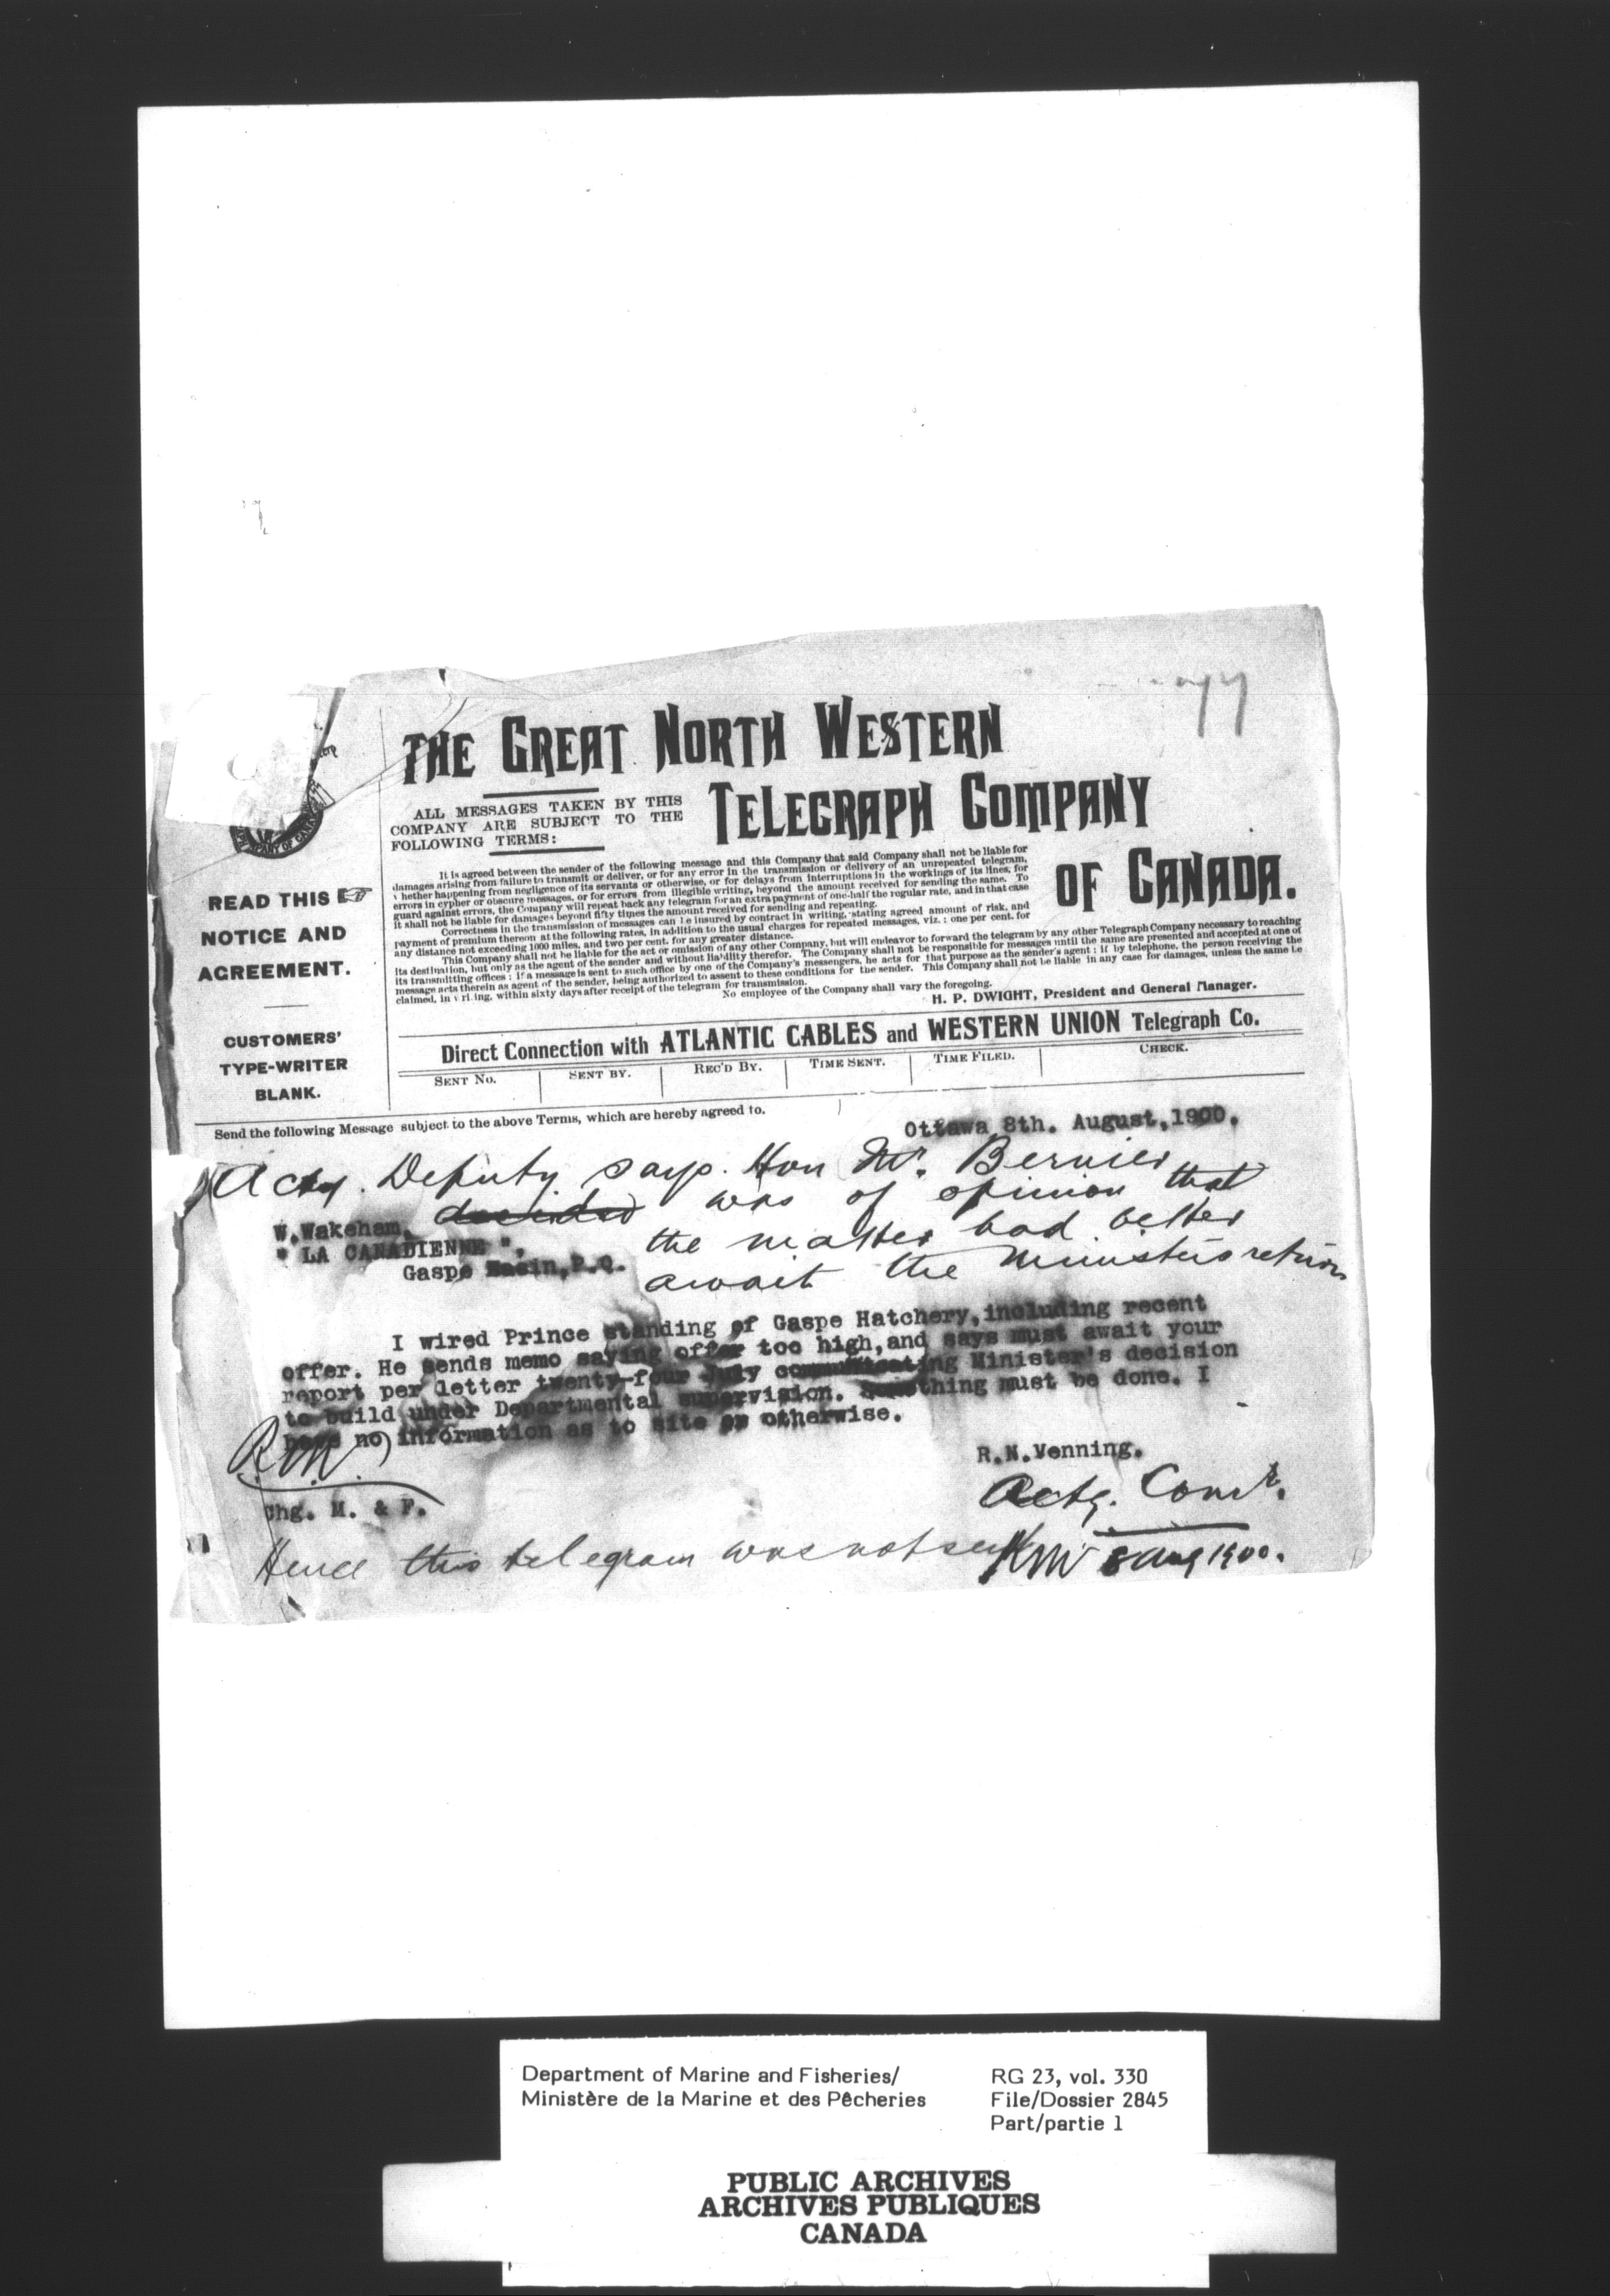 THE GREAT NORTH WESTERN
TELEGRAPH COMPANY
OF CANADA.
ALL MESSAGES TAKEN BY THIS
COMPANY ARE SUBJECT TO THE
FOLLOWING TERMS:
READ THIS
NOTICE AND
AGREEMENT.
CUSTOMERS'
TYPE-WRITER
BLANK.
It is agreed between the sender of the following message and this Company that said Company shall not be liable for
damages arising from failure to transmit or deliver, or for any error in the transmission or delivery of an unrepeated telegram,
hether happening from negligence of its servants or otherwise, or for delays from interruptions in the workings of its lines, for
errors in cypher or obscure messages, or for errors from illegible writing, beyond the amount received for sending the same. To
guard against errors, the Company will repeat back any telegram for an extra payment of one-half the regular rate, and in that case
it shall not be liable for damages beyond fifty times the amount received for sending and repeating.
Correctness in the transmission of messages can be insured by contract in writing, stating agreed amount of risk, and
payment of premium thereon at the following rates, in addition to the usual charges for repeated messages, viz.: one per cent. for
any distance not exceeding 1000 miles, and two per cent. for any greater distance.
This Company shall not be liable for the act or omission of any other Company, but will endeavor to forward the telegram by any other Telegraph Company necessary to reaching
its destination, but only as the agent of the sender and without liability therefor. The Company shall not be responsible for messages until the same are presented and accepted at one of
its transmitting offices; if a message is sent to such office by one of the Company's messengers, he acts for that purpose as the sender's agent; if by telephone, the person receiving the
message acts therein as agent of the sender, being authorized to assent to these conditions for the sender. This Company shall not be liable in any case for damages, unless the same be
claimed, in writing, within sixty days after receipt of the telegram for transmission.
No employee of the Company shall vary the foregoing.
H. P. DWIGHT, President and General Manager.
Direct Connection with ATLANTIC CABLES and WESTERN UNION Telegraph Co.
SENT NO. SENT BY. REC'D BY. TIME SENT. TIME FILED. CHECK.
Send the following Message subject to the above Terms, which are hereby agreed to.
Ottawa 8th. August, 1900.
Actg. Deputy says Hon Mr. Bernier
decided was of opinion that
the matter had better
await the Ministers return
W. Wakeham,
" LA CANADIENNE ",
Gaspe Basin, P.Q.
I wired Prince standing of Gaspe Hatchery, including recent
offer. He sends memo saying offer too high, and says must await your
report per letter twenty-four July communicating Minister's decision
to build under Departmental supervision. Something must be done. I
have no information as to site or otherwise.
R.N.Venning.
Actg. Comr.
Chg. M. & F.
Hence this telegram was not sent
8 Aug 1900.
Department of Marine and Fisheries/
Ministère de la Marine et des Pêcheries
RG 23, vol. 330
File/Dossier 2845
Part/partie 1
PUBLIC ARCHIVES
ARCHIVES PUBLIQUES
CANADA